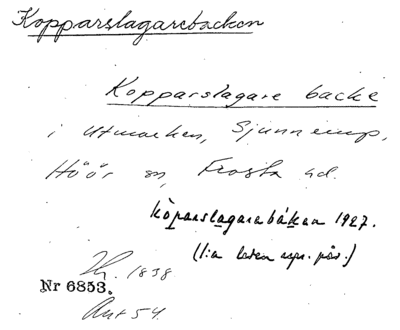 Kopparslagarebacken
Kopparslagare backe
i utmarken, Sjunnerup,
Höör sn, Frosta hd.
kòparslagarabákan 1927.
(1:a leden
1838
Nr 6853.
Ant 54